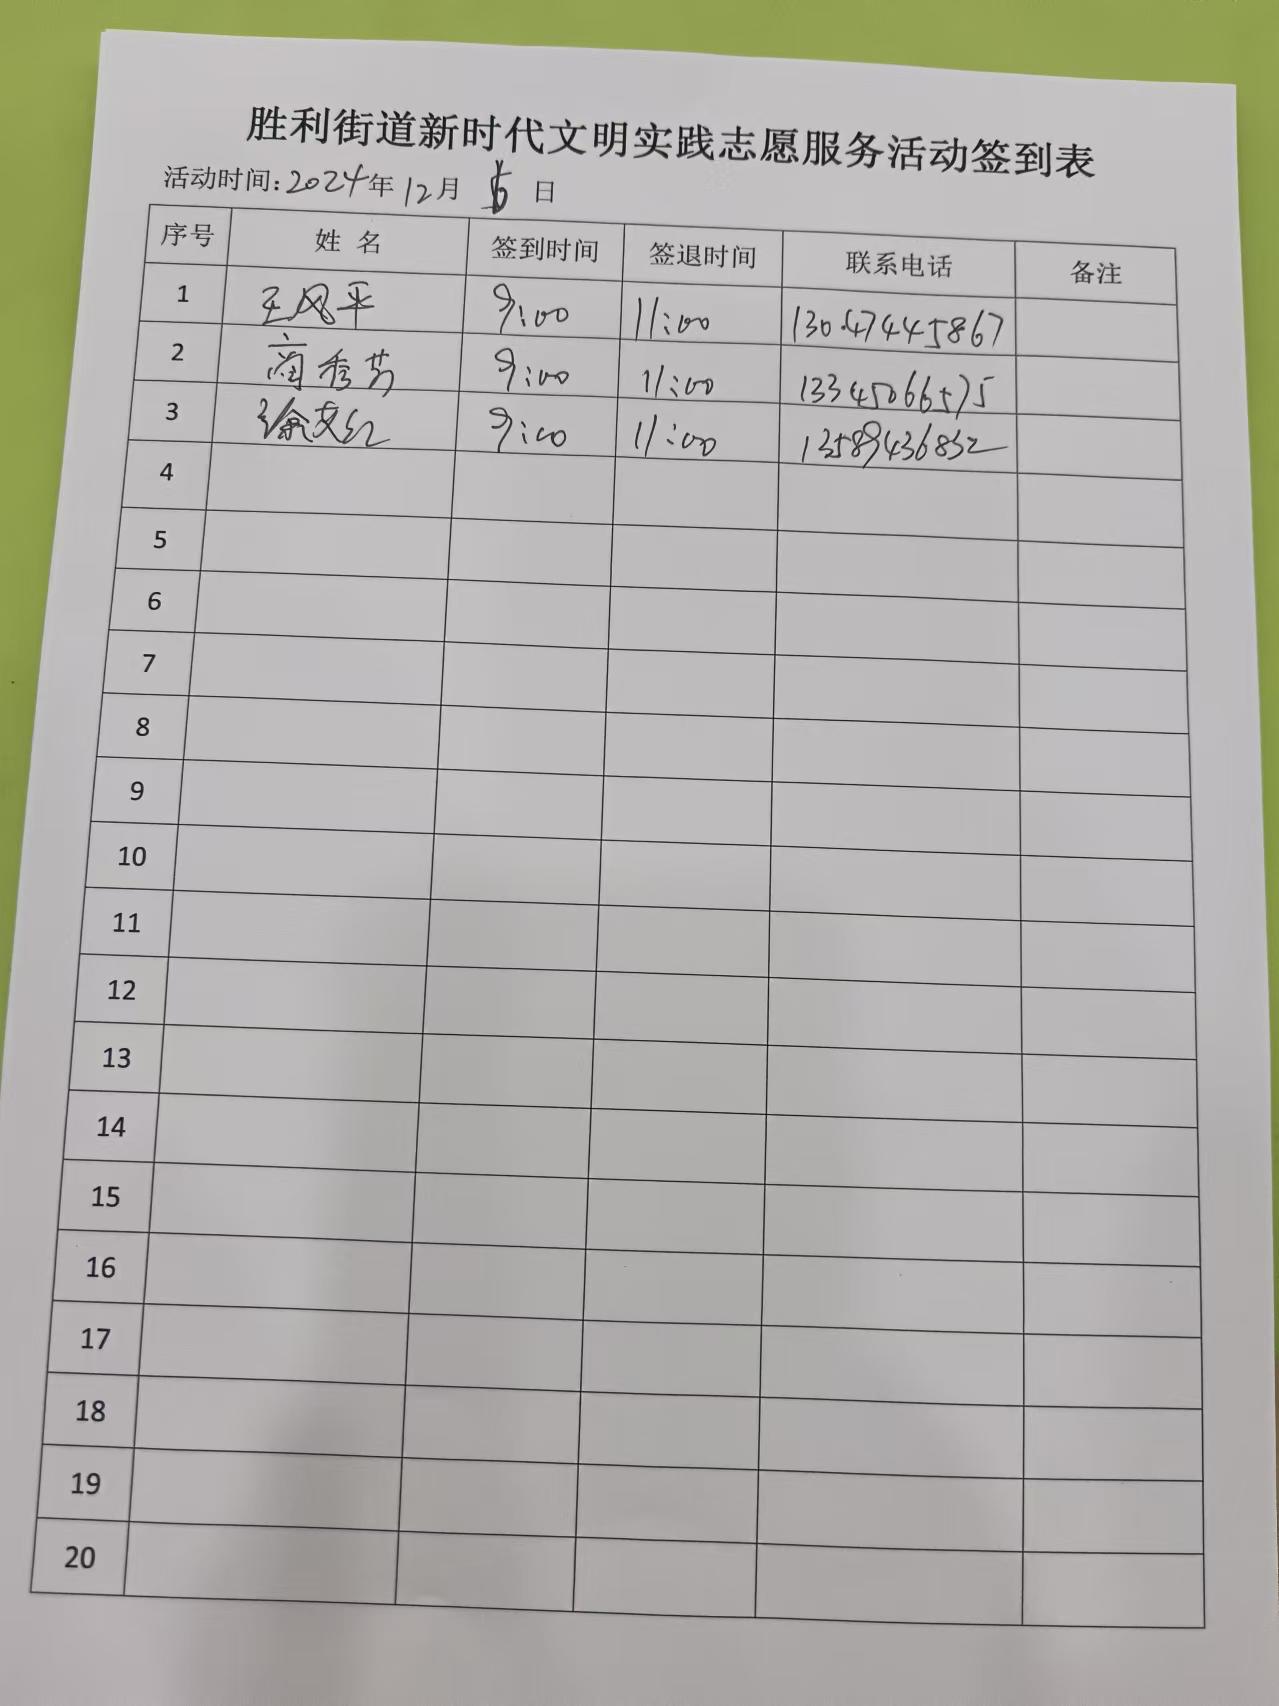 胜利街道新时代文明实践志愿服务活动签到表
活动时间:2024年12月 日
序号 姓 名 签到时间 签退时间 联系电话 备注
1 王风平 9:00 11:00 13047445867
2 蔺秀芳 9:00 11:00 13345066575
3 徐文红 9:00 11:00 13589436832
4
5
6
7
8
9
10
11
12
13
14
15
16
17
18
19
20